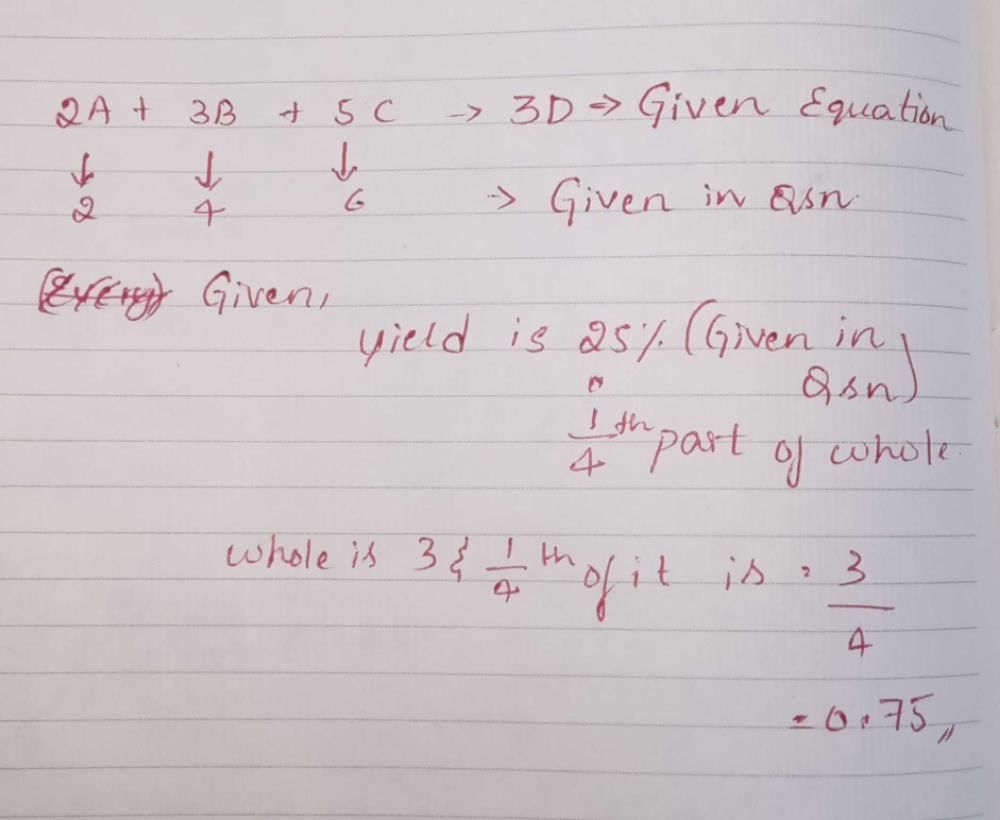 2A + 3B + 5C → 3D ⇒ Given Equation
↓ ↓ ↓
2 4 6 → Given in Qsn.
Given,
yield is 25% (Given in Qsn)
1/4 th part of whole.
whole is 3 & 1/4 th of it is = 3/4
= 0.75,,